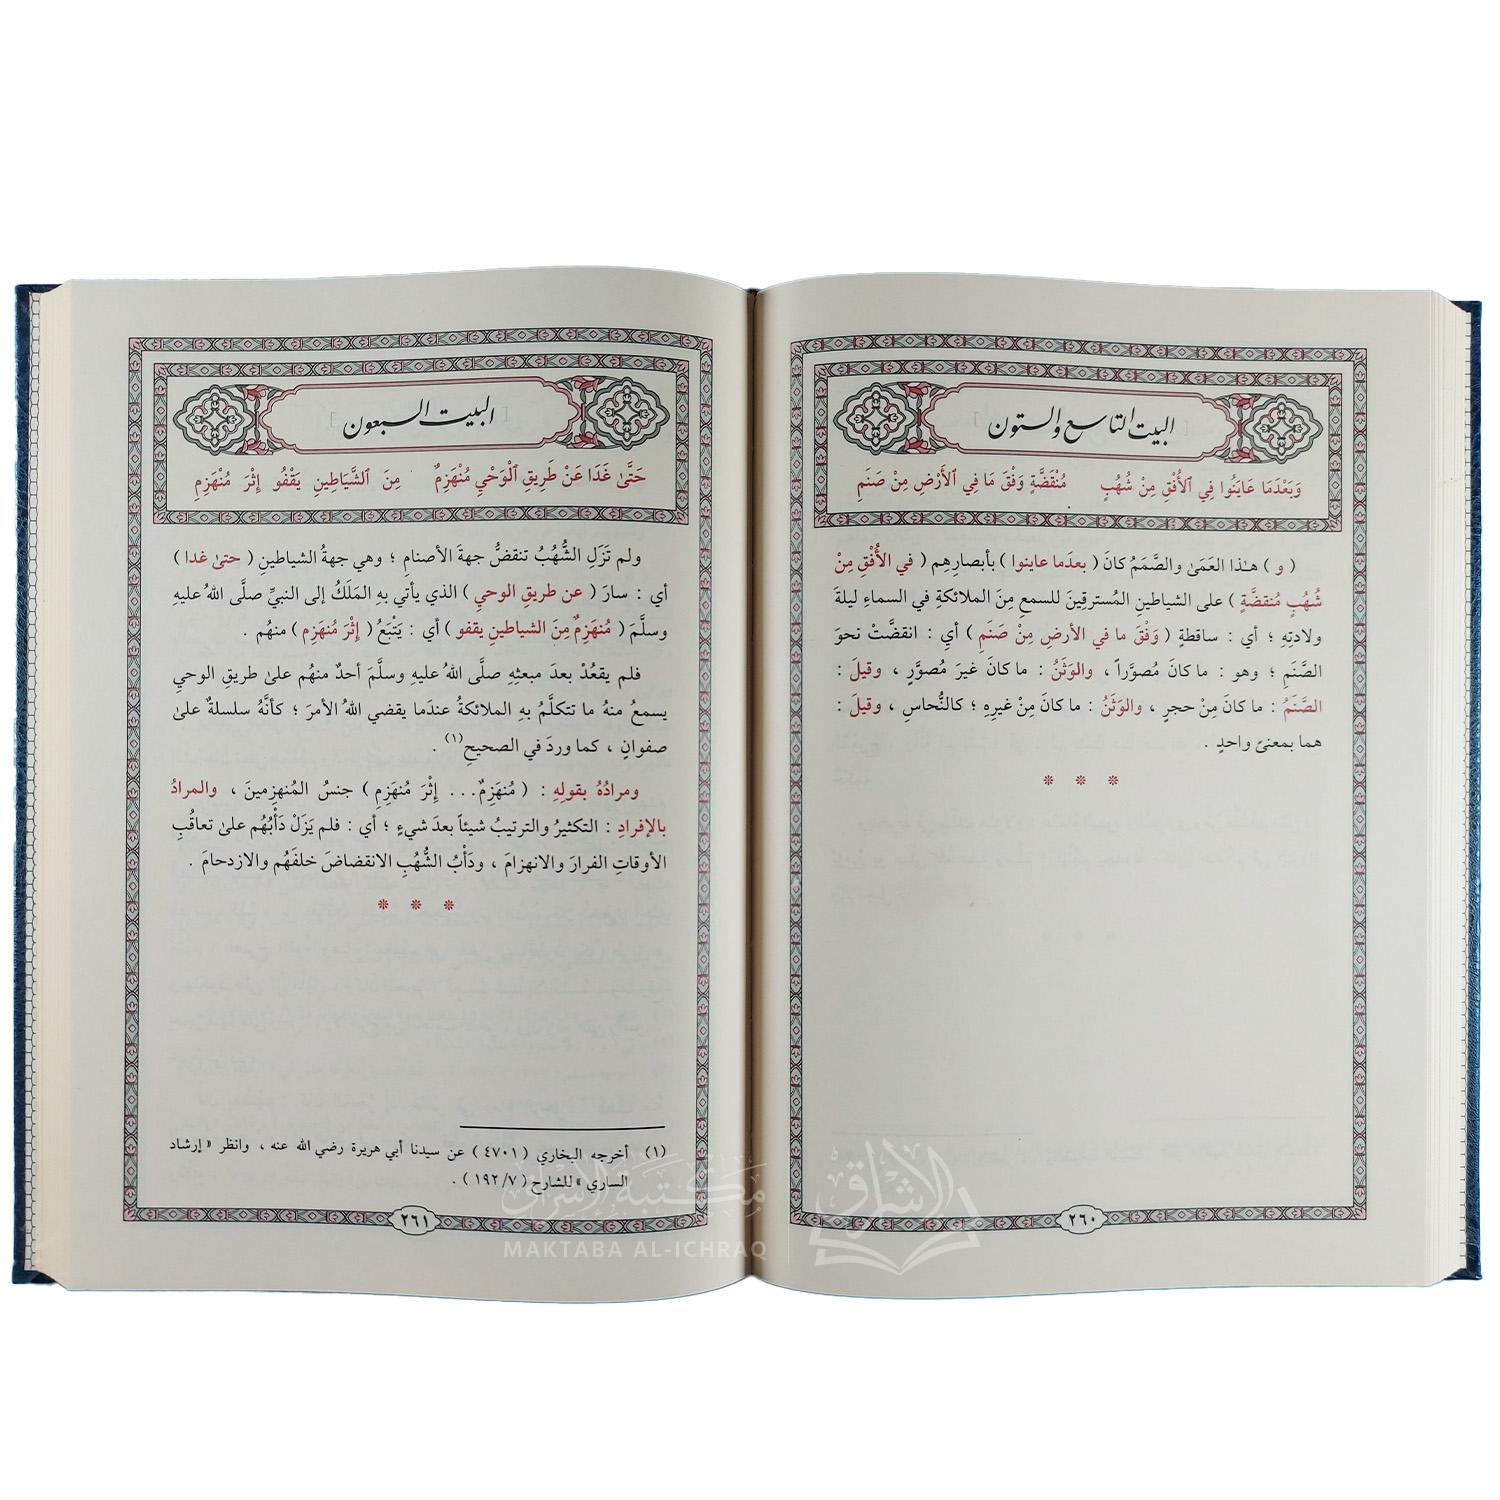 البيت التاسع والستون
وَبَعْدَمَا عَايَنُوا فِي ٱلْأُفْقِ مِنْ شُهُبٍ مُنْقَضَّةٍ وَفْقَ مَا فِي ٱلْأَرْضِ مِنْ صَنَمِ
( و ) هـٰذا العَمَىٰ والصَّمَمُ كانَ ( بعدَما عاينوا ) بأبصارِهِم ( في الأُفْقِ مِنْ
شُهُبٍ مُنقضَّةٍ ) على الشياطينِ المُسترقِينَ للسمعِ مِنَ الملائكةِ في السماءِ ليلةَ
ولادتِهِ ؛ أي : ساقطةٍ ( وَفْقَ ما في الأرضِ مِنْ صَنَمِ ) أي : انقضَّتْ نحوَ
الصَّنَمِ ؛ وهو : ما كانَ مُصوَّراً ، والوَثَنُ : ما كانَ غيرَ مُصوَّرٍ ، وقيلَ :
الصَّنَمُ : ما كانَ مِنْ حجرٍ ، والوَثَنُ : ما كانَ مِنْ غيرِهِ ؛ كالنُّحاسِ ، وقيلَ :
هما بمعنىً واحدٍ .
* * *
٢٦٠
البيت السبعون
حَتَّىٰ غَدَا عَنْ طَرِيقِ ٱلْوَحْيِ مُنْهَزِمٌ مِنَ ٱلشَّيَاطِينِ يَقْفُو إِثْرَ مُنْهَزِمِ
ولم تَزَلِ الشُّهُبُ تنقضُّ جهةَ الأصنامِ ؛ وهي جهةُ الشياطينِ ( حتىٰ غدا )
أي : سارَ ( عن طريقِ الوحيِ ) الذي يأتي بهِ المَلَكُ إلى النبيِّ صلَّى اللهُ عليهِ
وسلَّمَ ( مُنهَزِمٌ مِنَ الشياطينِ يقفو ) أي : يَتْبَعُ ( إِثْرَ مُنهَزِمِ ) منهُم .
فلم يقعُدْ بعدَ مبعثِهِ صلَّى اللهُ عليهِ وسلَّمَ أحدٌ منهُم علىٰ طريقِ الوحيِ
يسمعُ منهُ ما تتكلَّمُ بهِ الملائكةُ عندَما يقضي اللهُ الأمرَ ؛ كأنَّهُ سلسلةٌ علىٰ
صفوانٍ ، كما وردَ في الصحيحِ(١) .
ومرادُهُ بقولِهِ : ( مُنهَزِمٌ... إِثْرَ مُنهَزِمِ ) جنسُ المُنهزِمينَ ، والمرادُ
بالإفرادِ : التكثيرُ والترتيبُ شيئاً بعدَ شيءٍ ؛ أي : فلم يَزَلْ دَأْبُهُم علىٰ تعاقُبِ
الأوقاتِ الفرارَ والانهزامَ ، ودَأْبُ الشُّهُبِ الانقضاضَ خلفَهُم والازدحامَ .
* * *
(١) أخرجه البخاري ( ٤٧٠١ ) عن سيدنا أبي هريرة رضي الله عنه ، وانظر « إرشاد
الساري » للشارح ( ١٩٢/٧ ) .
٢٦١
مكتبة الإشراق
MAKTABA AL-ICHRAQ
الإشراق